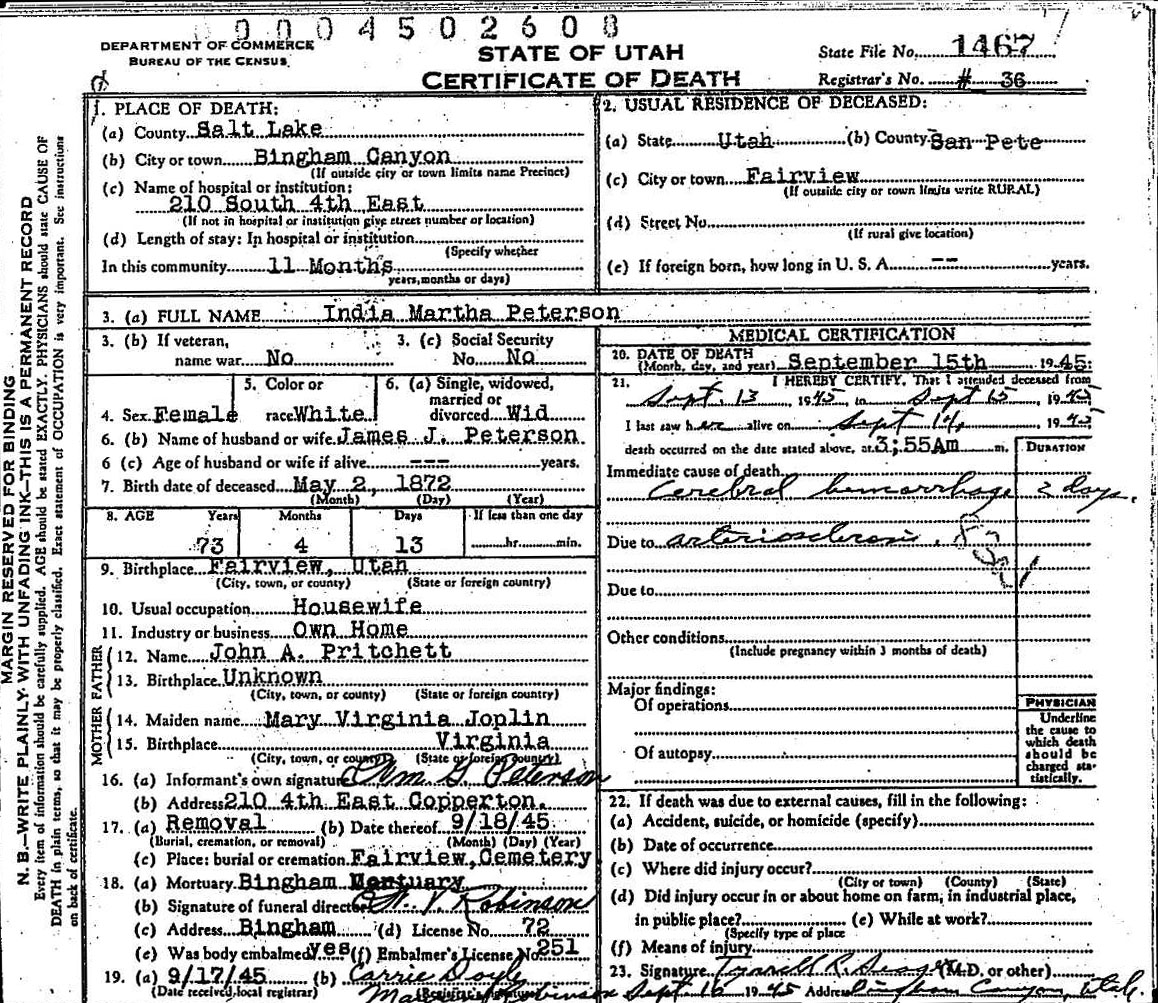 0004502608
DEPARTMENT OF COMMERCE
BUREAU OF THE CENSUS
STATE OF UTAH
CERTIFICATE OF DEATH
State File No. 1467
Registrar's No. # 36
MARGIN RESERVED FOR BINDING
N. B.—WRITE PLAINLY WITH UNFADING INK—THIS IS A PERMANENT RECORD
Every item of information should be carefully supplied. AGE should be stated EXACTLY. PHYSICIANS should state CAUSE OF
DEATH in plain terms, so that it may be properly classified. Exact statement of OCCUPATION is very important. See instructions
on back of certificate.
1. PLACE OF DEATH:
(a) County Salt Lake
(b) City or town Bingham Canyon
(If outside city or town limits name Precinct)
(c) Name of hospital or institution:
210 South 4th East
(If not in hospital or institution give street number or location)
(d) Length of stay: In hospital or institution
(Specify whether
In this community 11 Months
years, months or days)
2. USUAL RESIDENCE OF DECEASED:
(a) State Utah (b) County San Pete
(c) City or town Fairview
(If outside city or town limits write RURAL)
(d) Street No.
(If rural give location)
(e) If foreign born, how long in U. S. A. -- years.
3. (a) FULL NAME India Martha Peterson
3. (b) If veteran, name war No
3. (c) Social Security No. No
4. Sex Female
5. Color or race White
6. (a) Single, widowed, married or divorced Wid
6. (b) Name of husband or wife James J. Peterson
6 (c) Age of husband or wife if alive --- years.
7. Birth date of deceased May 2, 1872
(Month) (Day) (Year)
8. AGE Years Months Days If less than one day
73 4 13 hr. min.
9. Birthplace Fairview, Utah
(City, town, or county) (State or foreign country)
10. Usual occupation Housewife
11. Industry or business Own Home
FATHER
12. Name John A. Pritchett
13. Birthplace Unknown
(City, town, or county) (State or foreign country)
MOTHER
14. Maiden name Mary Virginia Joplin
15. Birthplace Virginia
(City, town, or county) (State or foreign country)
16. (a) Informant's own signature Wm G Peterson
(b) Address 210 4th East Copperton.
17. (a) Removal (b) Date thereof 9/18/45
(Burial, cremation, or removal) (Month) (Day) (Year)
(c) Place: burial or cremation Fairview, Cemetery
18. (a) Mortuary Bingham Mortuary
(b) Signature of funeral director V Robinson
(c) Address Bingham (d) License No. 72
(e) Was body embalmed? yes (f) Embalmer's License No. 251
19. (a) 9/17/45 (b) Carrie Doyle
(Date received local registrar) (Registrar's signature)
MEDICAL CERTIFICATION
20. DATE OF DEATH
(Month, day, and year) September 15th 1945
21. I HEREBY CERTIFY, That I attended deceased from
Sept. 13, 1945, to Sept 15, 1945
I last saw her alive on Sept 14, 1945
death occurred on the date stated above, at 3;55Am m.
DURATION
Immediate cause of death
Cerebral hemorrhage 2 days.
Due to arteriosclerosis.
Due to
Other conditions
(Include pregnancy within 3 months of death)
Major findings:
Of operations
Of autopsy
PHYSICIAN
Underline
the cause to
which death
should be
charged sta-
tistically.
22. If death was due to external causes, fill in the following:
(a) Accident, suicide, or homicide (specify)
(b) Date of occurrence
(c) Where did injury occur?
(City or town) (County) (State)
(d) Did injury occur in or about home on farm, in industrial place,
in public place? (e) While at work?
(Specify type of place
(f) Means of injury
23. Signature (M.D. or other)
Sept 1945 Address Bingham Canyon, Utah.